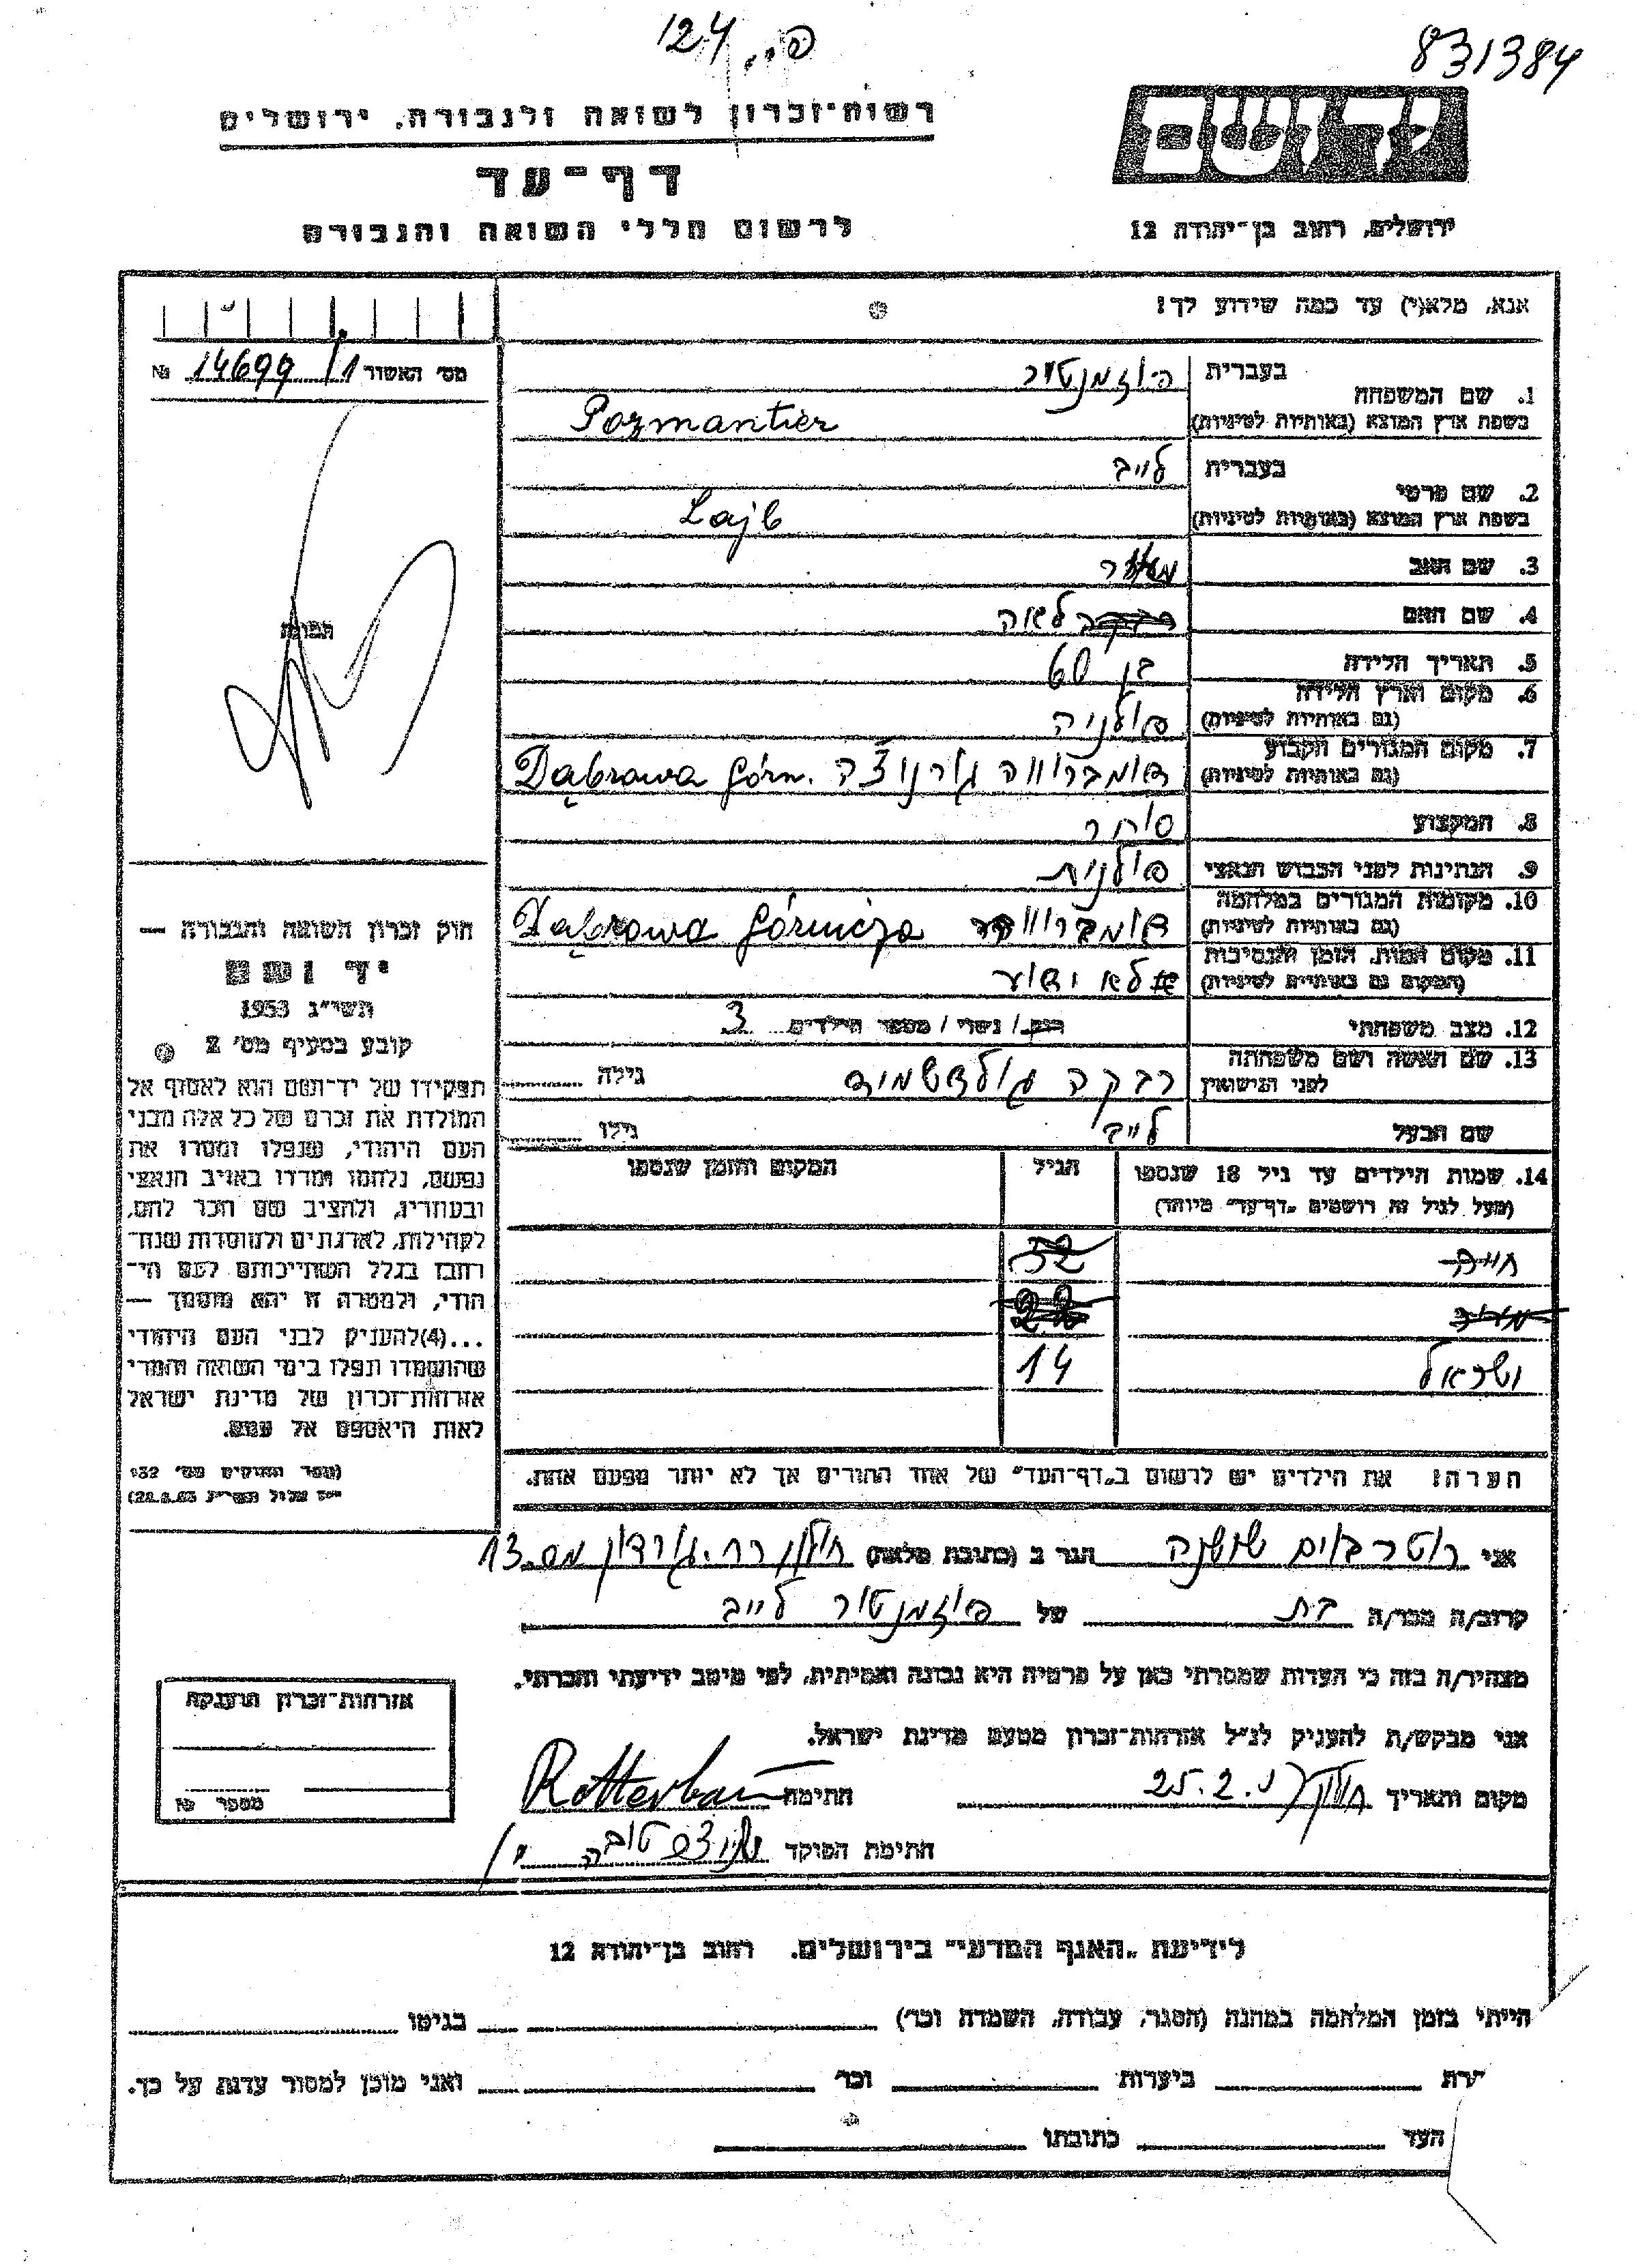 124 פ..
831384
יד ושם
רשות-זכרון לשואה ולגבורה, ירושלים
דף-עד
לרשום חללי השואה והגבורה
ירושלים, רחוב בן-יהודה 12
אנא, מלא(י) עד כמה שידוע לך!
מס' האשור 14699/1 №
תמונה
1. שם המשפחה
בעברית פוזמנטיר
בשפת ארץ המוצא (באותיות לטיניות) Pozmantier
2. שם פרטי
בעברית לייב
בשפת ארץ המוצא (באותיות לטיניות) Lajb
3. שם האב
4. שם האם לאה
5. תאריך הלידה בן 60
6. מקום וארץ הלידה (גם באותיות לטיניות) פולניה
7. מקום המגורים הקבוע (גם באותיות לטיניות) דומברווה גורניצ'ה Dąbrowa Górn.
8. המקצוע סוחר
9. הנתינות לפני הכבוש הנאצי פולנית
10. מקומות המגורים במלחמה (גם באותיות לטיניות) דומברווה Dąbrowa Górnicza
11. מקום המות, הזמן והנסיבות (המקום גם באותיות לטיניות) לא ידוע
12. מצב משפחתי רווק / נשוי / מספר הילדים 3
13. שם האשה ושם משפחתה לפני הנישואין רבקה גולדשמיד גילה
שם הבעל לייב גילו
14. שמות הילדים עד גיל 18 שנספו הגיל המקום והזמן שנספו
(מעל לגיל זה רושמים "דף-עד" מיוחד)
חיים 32
ישראל 14
הערה! את הילדים יש לרשום ב"דף-העד" של אחד ההורים אך לא יותר מפעם אחת.
חוק זכרון השואה והגבורה —
יד ושם
תשי"ג 1953
קובע בסעיף מס' 2
תפקידו של יד-ושם הוא לאסוף אל
המולדת את זכרם של כל אלה מבני
העם היהודי, שנפלו ומסרו את
נפשם, נלחמו ומרדו באויב הנאצי
ובעוזריו, ולהציב שם וזכר להם,
לקהילות, לארגונים ולמוסדות שנח-
רבו בגלל השתייכותם לעם הי-
הודי, ולמטרה זו יהא מוסמך —
...(4) להעניק לבני העם היהודי
שהושמדו ונפלו בימי השואה והמרי
אזרחות-זכרון של מדינת ישראל
לאות היאספם אל עמם.
(ספר החוקים מס' 132
י"ז אלול תשי"ג 28.8.53)
אני רוטרבוים שושנה הגר ב (כתובת מלאה) חולון רח. גורדון מס. 13
קרוב/ה מכר/ה בת של פוזמנטיר לייב
מצהיר/ה בזה כי העדות שמסרתי כאן על פרטיה היא נכונה ואמיתית, לפי מיטב ידיעתי והכרתי.
אני מבקש/ת להעניק לנ"ל אזרחות-זכרון מטעם מדינת ישראל.
מקום ותאריך חולון 25.2. חתימה Rotterbaum
חתימת הפוקד
אזרחות-זכרון הוענקה
מספר №
לידיעת "האגף המדעי" בירושלים, רחוב בן-יהודה 12
הייתי בזמן המלחמה במחנה (הסגר, עבודה, השמדה וכר') בגיטו
ביערות וכר' ואני מוכן למסור עדות על כך.
העד כתובתו